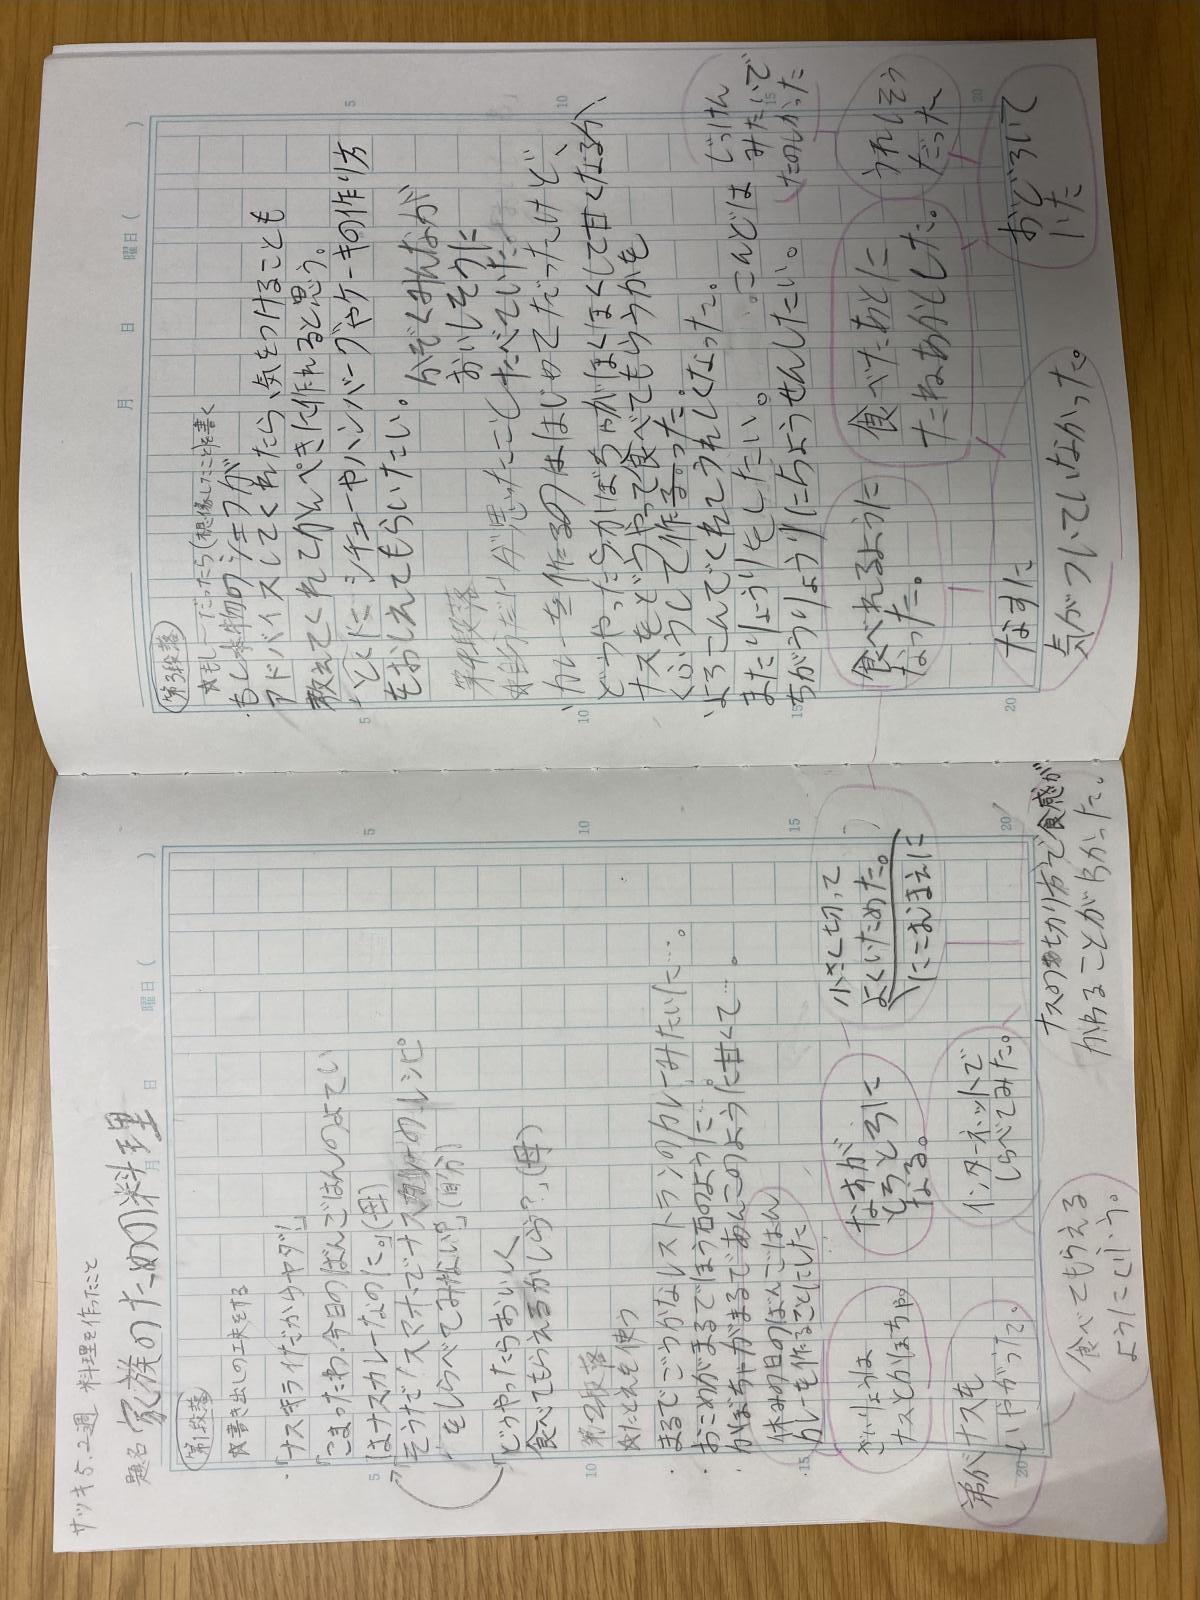 サツキ5.2週 料理を作ったこと
題名 家族のための料理
月 日 曜日( )
第1段落
☆書き出しの工夫をする
・「ナスキライだからヤダ!」
「こまったわ、今日のばんごはんのよてい
はナスカレーなのに。」(母)
「そうだ!スマホでナスのレシピ
をしらべてみない?」(自分)
「どうやったらおいしく
食べてもらえるかしら?」(母)
第2段落
☆たとえを使う
・まるでごうかなレストランのカレーみたいに…。
・おこめがまるでほう石のように…
・かぼちゃがまるであんこのように甘くて…。
・休みの日のばんごはん
カレーを作ることにした
ざいりょうは
ナスとかぼちゃ。
なすが
とろとろに
なる。
小さく切って
よくいためた。
にこむまえに
弟がナスを
いやがった。
インターネットで
しらべてみた。
食べてもらえる
ようにくふう。
ナスの切り方で食感が
かわることがわかった。
5
10
15
20
月 日 曜日( )
第3段落
☆もし〜だったら(想像したこと)を書く
・もし本物のシェフが
アドバイスしてくれたら、気をつけることも
教えてくれてかんぺきに作れると思う。
・とくにシチューやハンバーグやケーキの作り方
をおしえてもらいたい。
かぞくみんなが
おいしそうに
たべていた。
第4段落
☆自分だけが思ったこと
・カレーを作るのははじめてだったけど、
どうやったらかぼちゃがほくほくして甘くなるか、
ナスをどうやって食べてもらうかを
くふうして作った。
・よろこんでくれてうれしくなった。
またりょうりをしたい。
・こんどは
ちがうりょうりにちょうせんしたい。
じっけん
みたいで
たのしかった
食べれるように
なった。
食べたあとに
たねあかしした。
うれしそう
だった
なすに
気がついていなかった。
おどろいて
いた
5
10
15
20